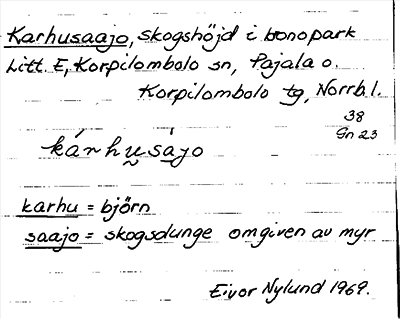 Karhusaajo, skogshöjd i kronopark
Litt. E, Korpilombolo sn, Pajala o.
Korpilombolo tg, Norrb.l.
38
Gn 23
kárhu̯sájo
karhu = björn
saajo = skogsdunge omgiven av myr
Eivor Nylund 1969.